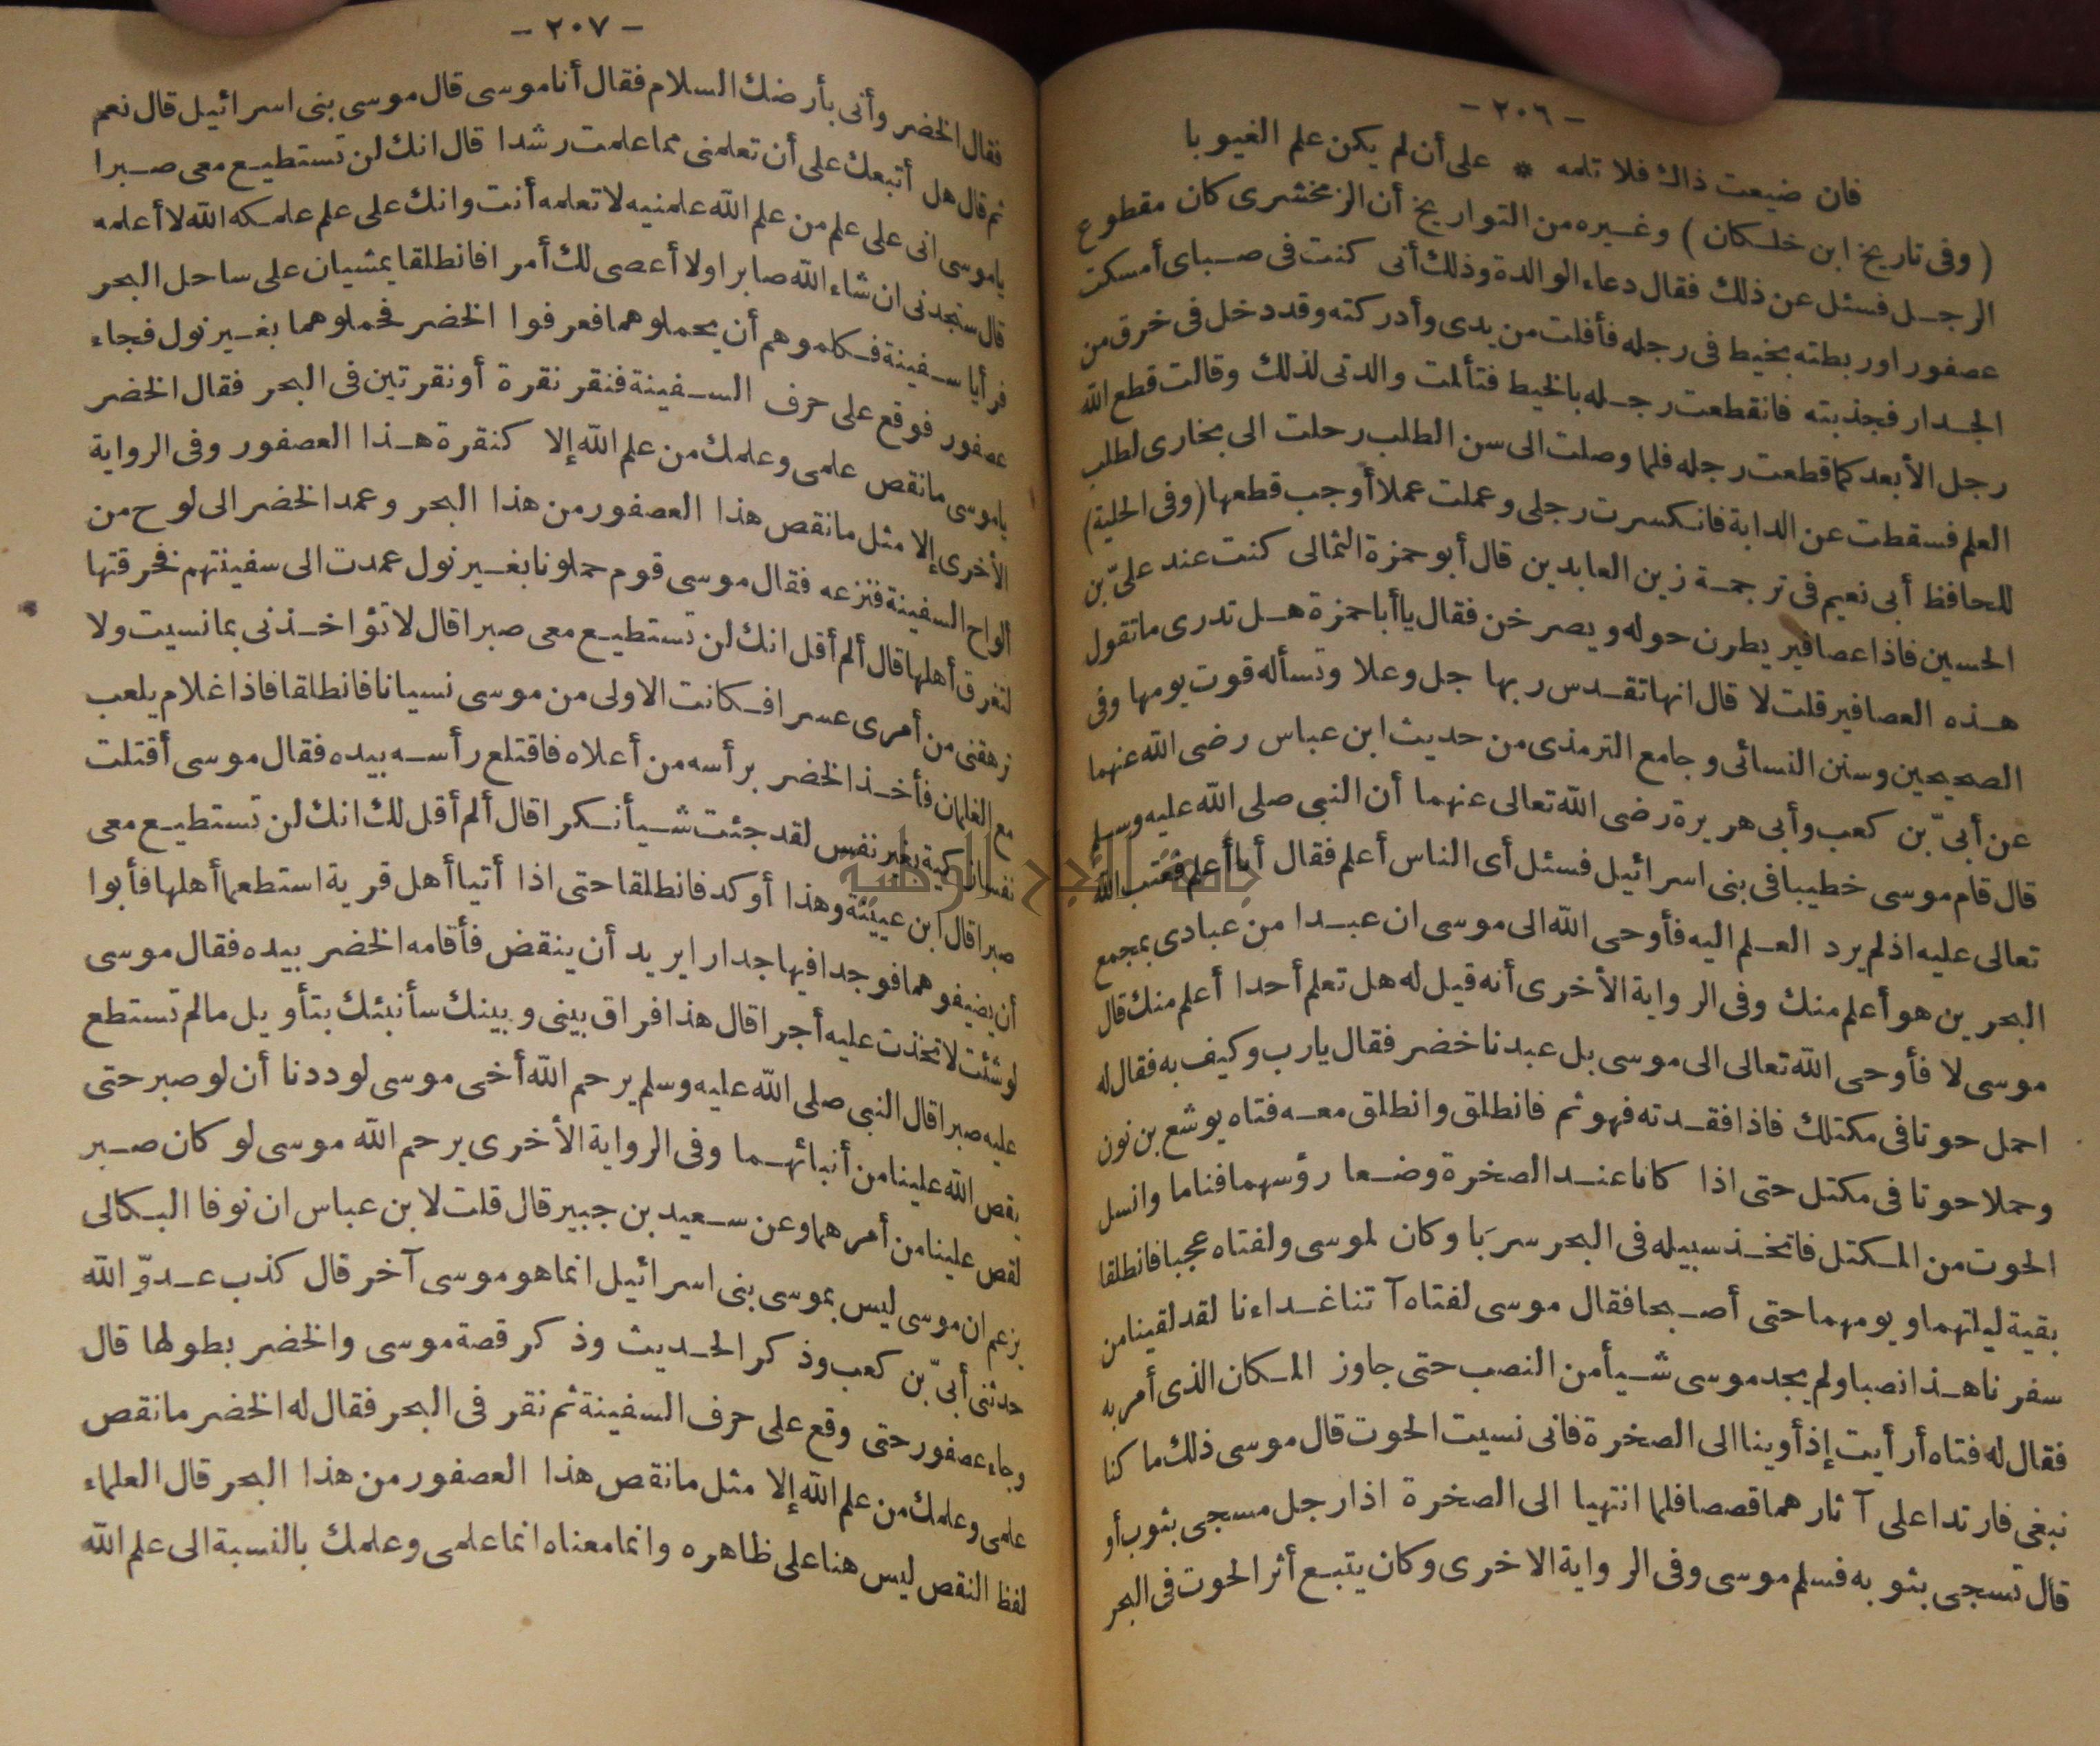 - ٢٠٦ -
فان ضيعت ذاك فلا تلمه * على أن لم يكن علم الغيوبا
( وفى تاريخ ابن خلكان ) وغيره من التواريخ أن الزمخشرى كان مقطوع
الرجل فسئل عن ذلك فقال دعاء الوالدة وذلك أنى كنت فى صباى أمسكت
عصفورا وربطته بخيط فى رجله فأفلت من يدى وأدركته وقد دخل فى خرق من
الجدار فجذبته فانقطعت رجله بالخيط فتألمت والدتى لذلك وقالت قطع الله
رجل الأبعد كما قطعت رجله فلما وصلت الى سن الطلب رحلت الى بخارى لطلب
العلم فسقطت عن الدابة فانكسرت رجلى وعملت عملا أوجب قطعها (وفى الحلية)
للحافظ أبى نعيم فى ترجمة زين العابدين قال أبو حمزة الثمالى كنت عند علىّ بن
الحسين فاذا عصافير يطرن حوله ويصرخن فقال يا أبا حمزة هل تدرى ما تقول
هذه العصافير قلت لا قال انها تقدس ربها جل وعلا وتسأله قوت يومها وفى
الصحيحين وسنن النسائى وجامع الترمذى من حديث ابن عباس رضى الله عنهما
عن أبىّ بن كعب وأبى هريرة رضى الله تعالى عنهما أن النبى صلى الله عليه وسلم
قال قام موسى خطيبا فى بنى اسرائيل فسئل أى الناس أعلم فقال أنا أعلم فعتب الله
تعالى عليه اذ لم يرد العلم اليه فأوحى الله الى موسى ان عبدا من عبادى بمجمع
البحرين هو أعلم منك وفى الرواية الأخرى أنه قيل له هل تعلم أحدا أعلم منك قال
موسى لا فأوحى الله تعالى الى موسى بل عبدنا خضر فقال يارب وكيف به فقال له
احمل حوتا فى مكتلك فاذا فقدته فهو ثم فانطلق وانطلق معه فتاه يوشع بن نون
وحملا حوتا فى مكتل حتى اذا كانا عند الصخرة وضعا رؤسهما فناما وانسل
الحوت من المكتل فاتخذ سبيله فى البحر سربَا وكان لموسى ولفتاه عجبا فانطلقا
بقية ليلتهما ويومهما حتى أصبحا فقال موسى لفتاه آتنا غداءنا لقد لقينا من
سفرنا هذا نصبا ولم يجد موسى شيأ من النصب حتى جاوز المكان الذى أمر به
فقال له فتاه أرأيت إذ أوينا الى الصخرة فانى نسيت الحوت قال موسى ذلك ما كنا
نبغى فارتدا على آثارهما قصصا فلما انتهيا الى الصخرة اذا رجل مسجى بثوب أو
قال تسجى بثوبه فسلم موسى وفى الرواية الاخرى وكان يتبع أثر الحوت فى البحر
- ٢٠٧ -
فقال الخضر وأنى بأرضك السلام فقال أنا موسى قال موسى بنى اسرائيل قال نعم
ثم قال هل أتبعك على أن تعلمنى مما علمت رشدا قال انك لن تستطيع معى صبرا
ياموسى انى على علم من علم الله علمنيه لا تعلمه أنت وانك على علم علمكه الله لا أعلمه
قال ستجدنى ان شاء الله صابرا ولا أعصى لك أمرا فانطلقا يمشيان على ساحل البحر
فرأيا سفينة فكلموهم أن يحملوهما فعرفوا الخضر فحملوهما بغير نول فجاء
عصفور فوقع على حرف السفينة فنقر نقرة أو نقرتين فى البحر فقال الخضر
ياموسى ما نقص علمى وعلمك من علم الله إلا كنقرة هذا العصفور وفى الرواية
الأخرى إلا مثل ما نقص هذا العصفور من هذا البحر وعمد الخضر الى لوح من
ألواح السفينة فنزعه فقال موسى قوم حملونا بغير نول عمدت الى سفينتهم فخرقتها
لتغرق أهلها قال ألم أقل انك لن تستطيع معى صبرا قال لا تؤاخذنى بما نسيت ولا
ترهقنى من أمرى عسرا فكانت الاولى من موسى نسيانا فانطلقا فاذا غلام يلعب
مع الغلمان فأخذ الخضر برأسه من أعلاه فاقتلع رأسه بيده فقال موسى أقتلت
نفسا زكية بغير نفس لقد جئت شيأ نكرا قال ألم أقل لك انك لن تستطيع معى
صبرا قال ابن عيينة وهذا أوكد فانطلقا حتى اذا أتيا أهل قرية استطعما أهلها فأبوا
أن يضيفوهما فوجدا فيها جدارا يريد أن ينقض فأقامه الخضر بيده فقال موسى
لو شئت لاتخذت عليه أجرا قال هذا فراق بينى وبينك سأنبئك بتأويل مالم تستطع
عليه صبرا قال النبى صلى الله عليه وسلم يرحم الله أخى موسى لوددنا أن لو صبر حتى
يقص الله علينا من أنبائهما وفى الرواية الأخرى يرحم الله موسى لو كان صبر
لقص علينا من أمرهما وعن سعيد بن جبير قال قلت لابن عباس ان نوفا البكالى
يزعم ان موسى ليس بموسى بنى اسرائيل انما هو موسى آخر قال كذب عدوّ الله
حدثنى أبىّ بن كعب وذكر الحديث وذكر قصة موسى والخضر بطولها قال
وجاء عصفور حتى وقع على حرف السفينة ثم نقر فى البحر فقال له الخضر ما نقص
علمى وعلمك من علم الله إلا مثل ما نقص هذا العصفور من هذا البحر قال العلماء
لفظ النقص ليس هنا على ظاهره وانما معناه انما علمى وعلمك بالنسبة الى علم الله
جامعة النجاح الوطنية